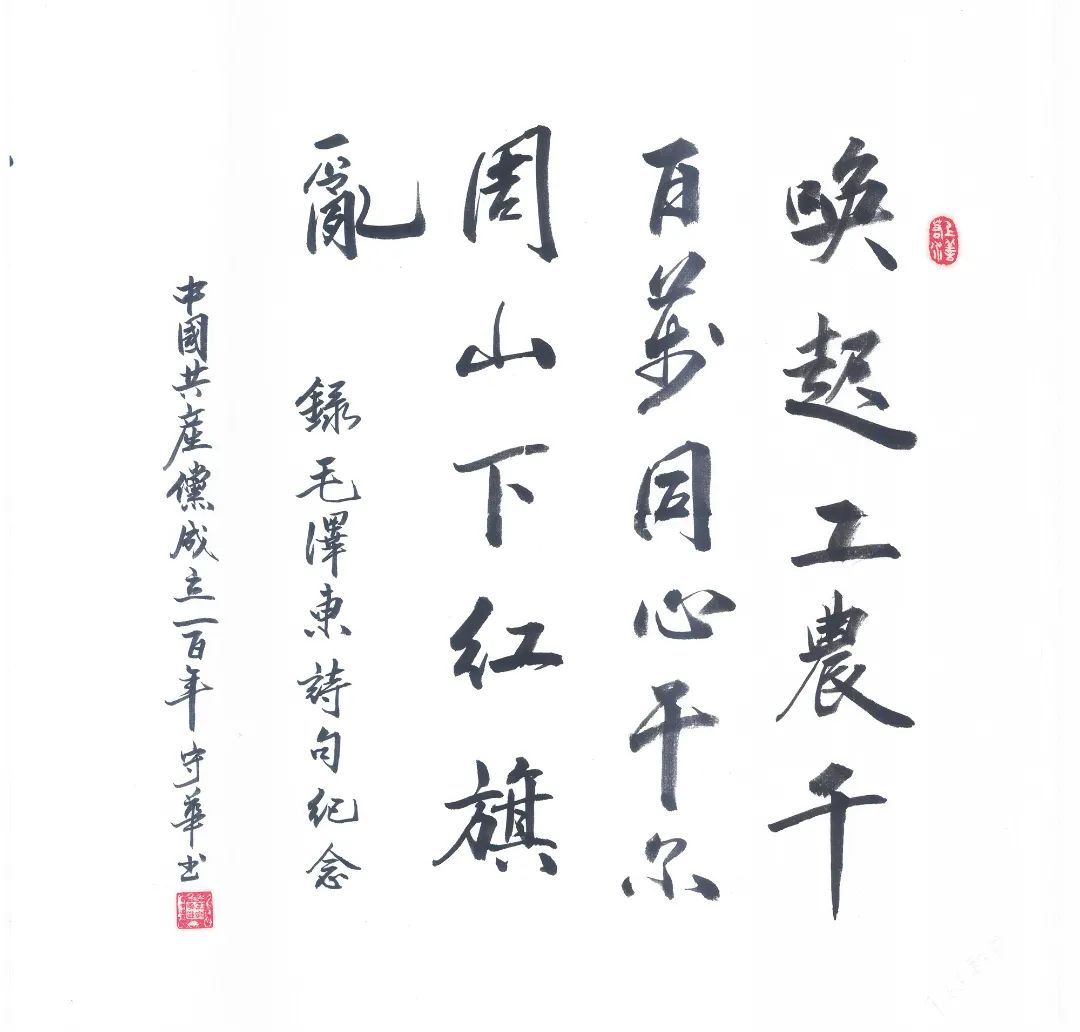 上善若水
唤起工農千
百萬同心干不
周山下红旗
亂 録毛澤東詩句纪念
中國共産黨成立一百年 守華书